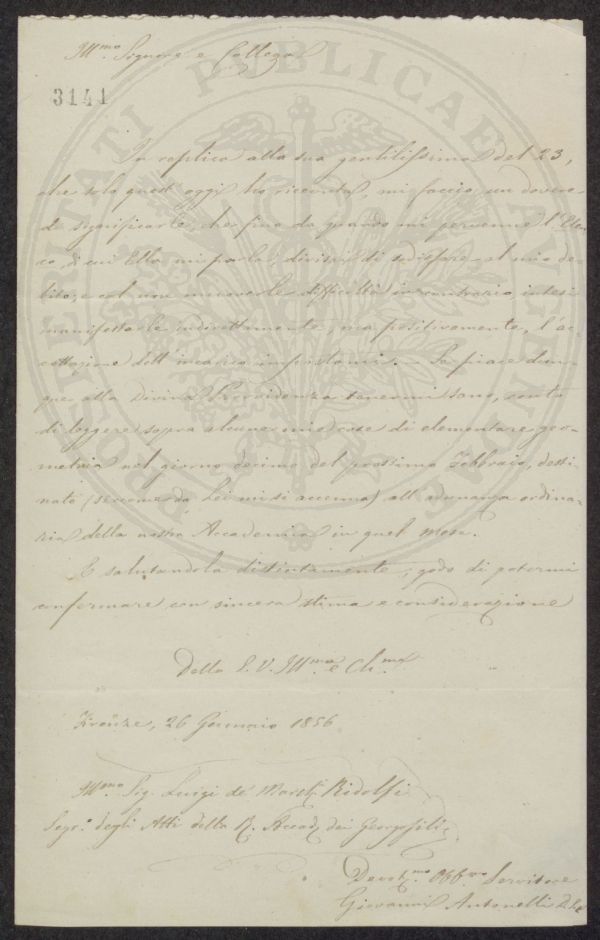 Ill.mo Signore e Collega
3141
In replica alla sua gentilissima del 23,
che solo quest'oggi ho ricevuta, mi faccio un dovere
di significarle, che fino da quando mi pervenne l'Elen-
co, di cui Ella mi parla, divisai di sodisfare al mio de-
bito; e col non muoverle difficoltà in contrario intesi
manifestarle indirettamente, ma positivamente, l'ac-
cettazione dell'incarico impostomi. Se piace dun-
que alla Divina Provvidenza tenermi sano, conto
di leggere sopra alcune mie cose di elementare geo-
metria nel giorno decimo del prossimo Febbraio, desti-
nato (siccome da Lei mi si accenna) all'adunanza ordina-
ria della nostra Accademia in quel mese.
E salutandola distintamente, godo di potermi
confermare con sincera stima e considerazione
Della S. V. Ill.ma e Ch.ma
Firenze, 26 Gennaio 1856
Ill.mo Sig. Luigi de' March. Ridolfi
Segr.o degli Atti della R. Accad. dei Georgofili
Devot.mo Obb.mo Servitore
Giovanni Antonelli
PROSPERITATI PUBLICAE AUGENDAE